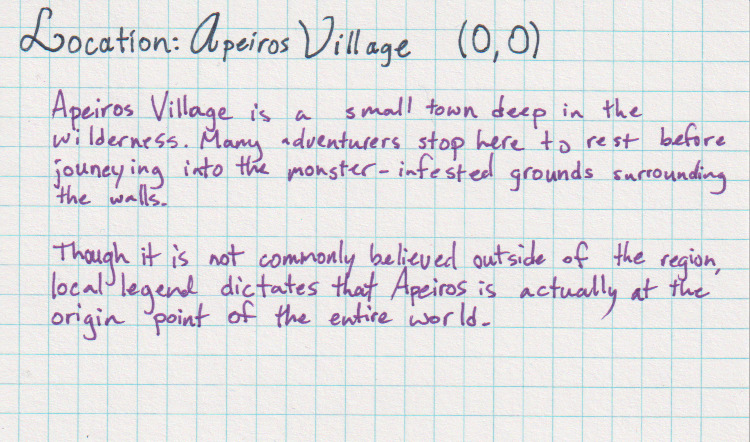 Location: Apeiros Village (0,0)
Apeiros Village is a small town deep in the
wilderness. Many adventurers stop here to rest before
jouneying into the monster-infested grounds surrounding
the walls.
Though it is not commonly believed outside of the region,
local legend dictates that Apeiros is actually at the
origin point of the entire world.